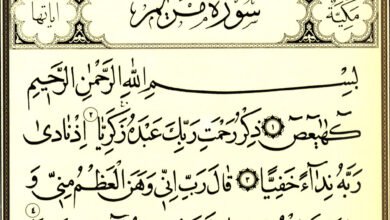 مَكِيَّة سُورَةُ مَرْيَم اٰيَاتُهَا
بِسْمِ اللّٰهِ الرَّحْمٰنِ الرَّحِيمِ
كٓهٰيٰعٓصٓ ١ ذِكْرُ رَحْمَتِ رَبِّكَ عَبْدَهُ زَكَرِيَّا ٢ اِذْ نَادٰى
رَبَّهُ نِدَٓاءً خَفِيًّا ٣ قَالَ رَبِّ اِنِّى وَهَنَ الْعَظْمُ مِنِّى وَ
٤